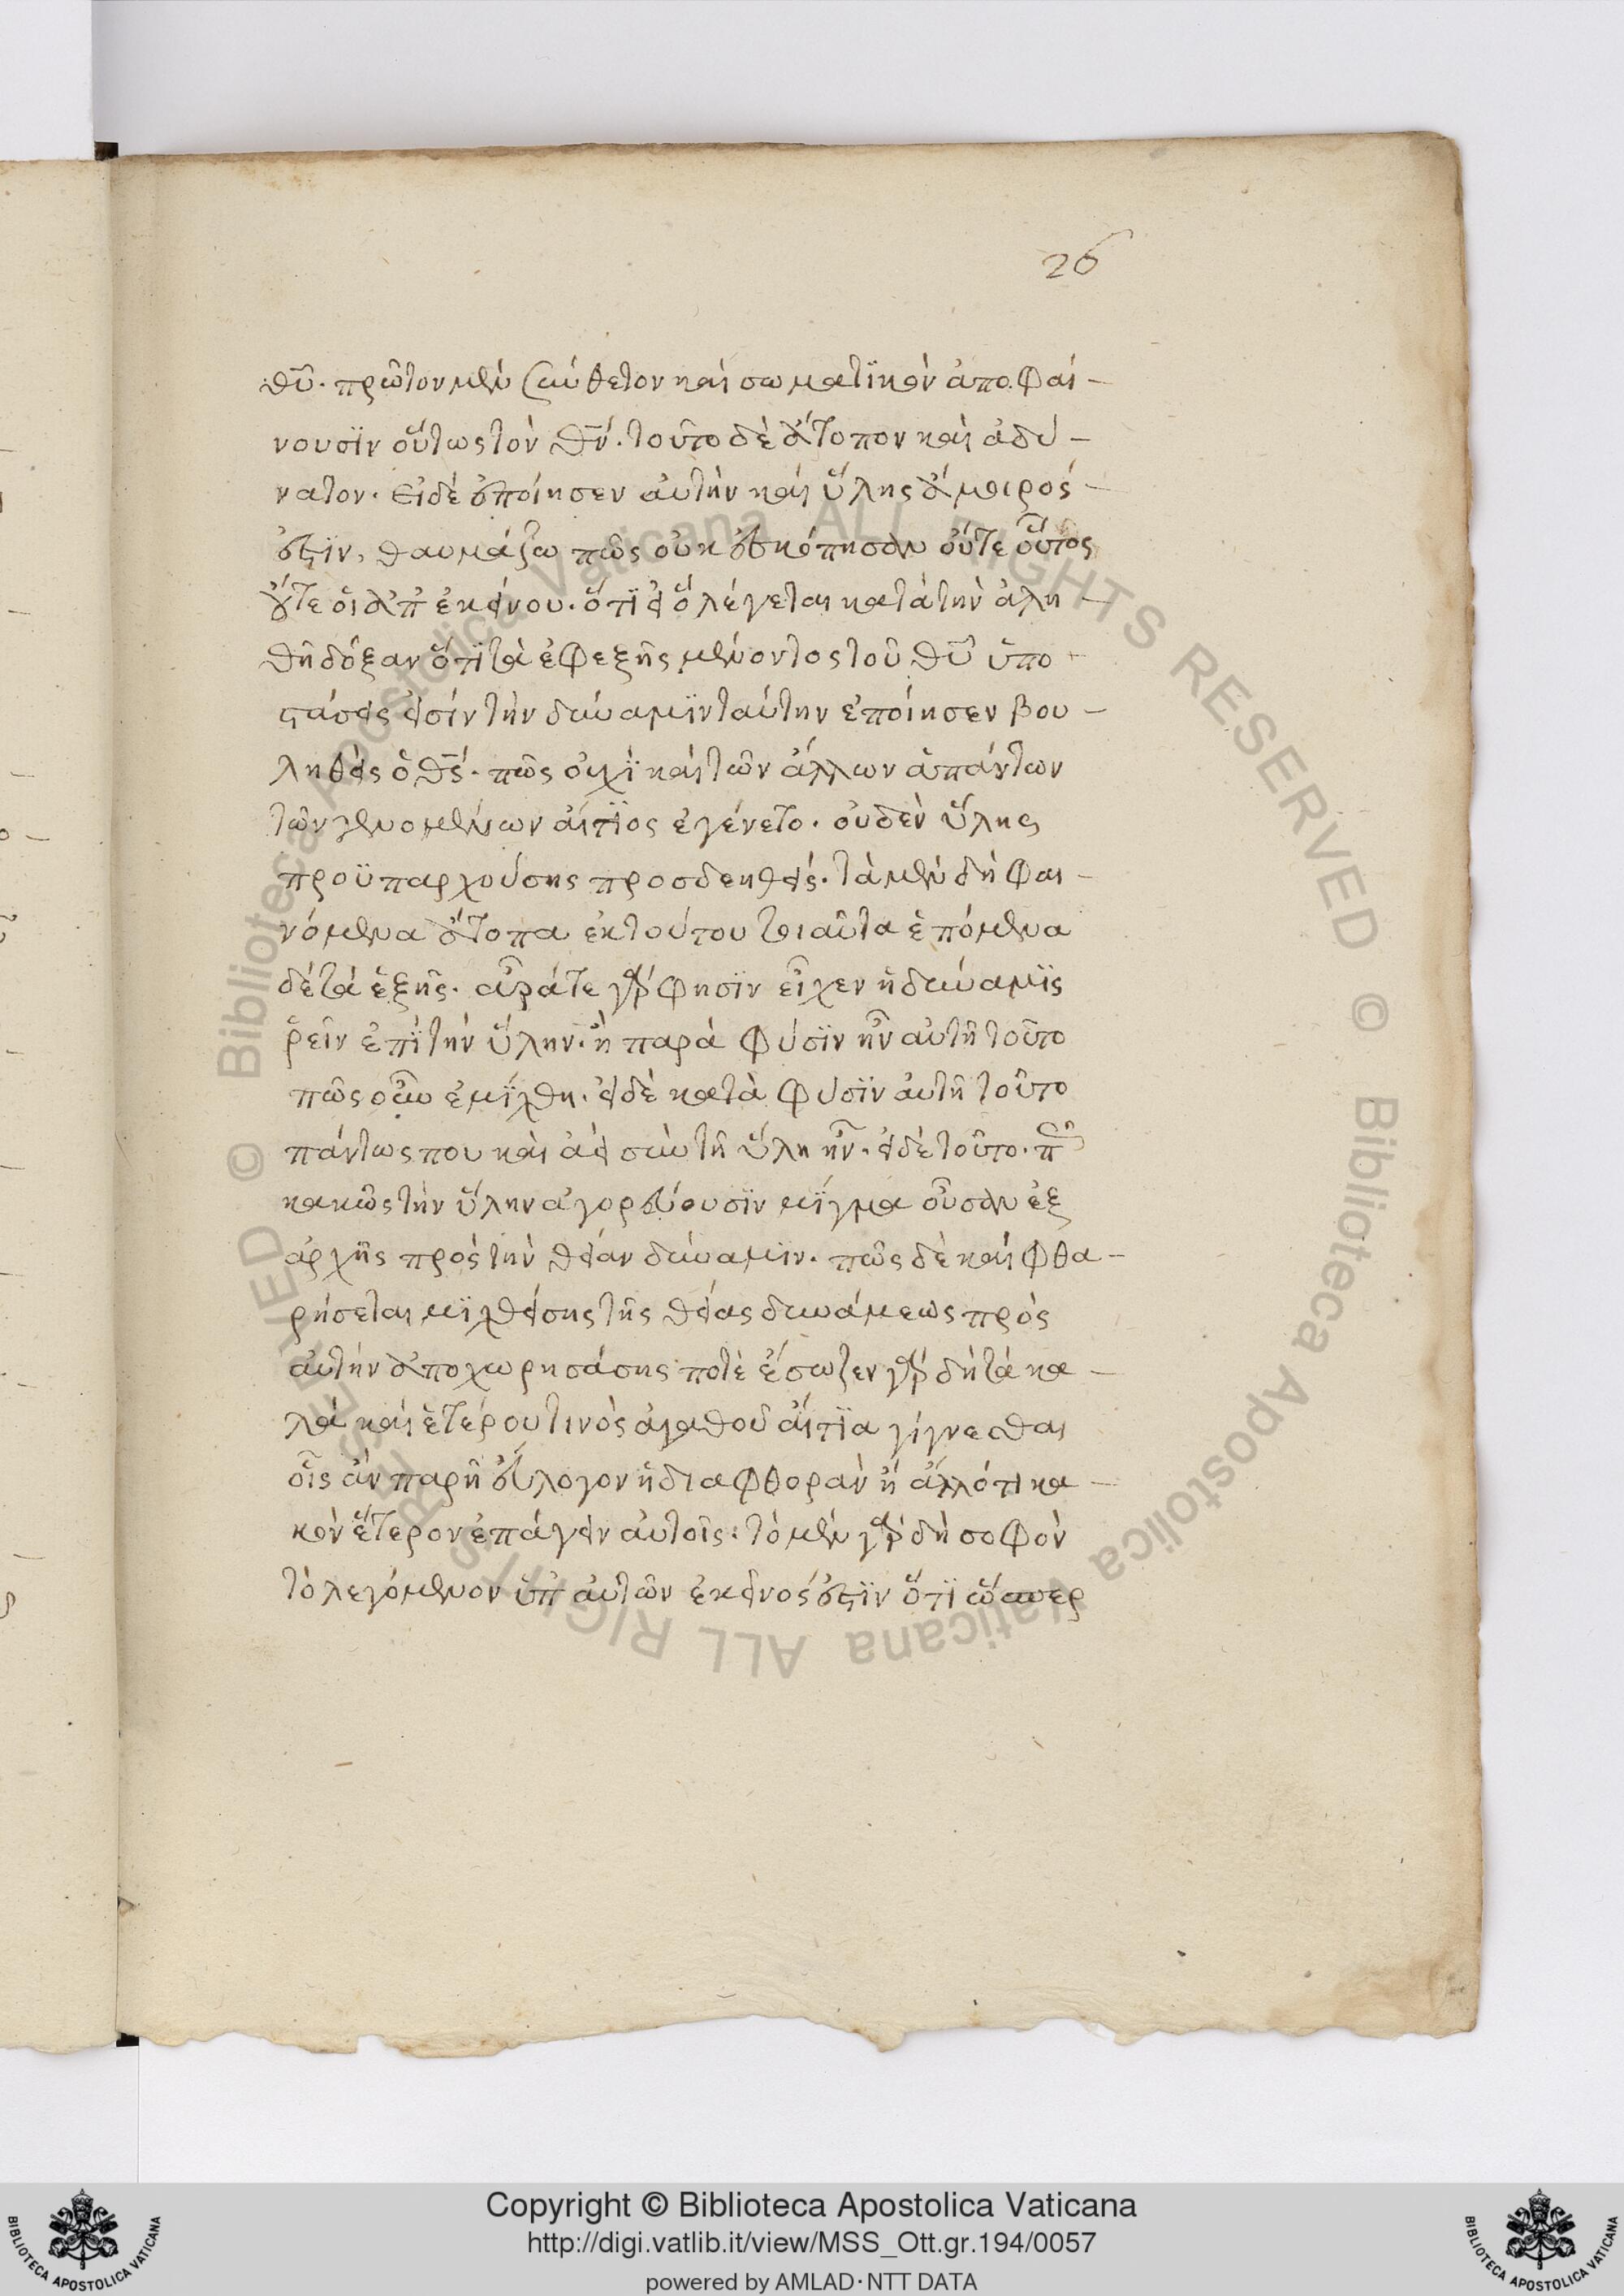 26
θῦ. πρῶτον μὲν σύνθετον καὶ σωματϊκὸν ἀποφαί-
νουσϊν οὕτως τὸν θν̄. τοῦτο δὲ ἄτοπον καὶ ἀδύ-
νατον. εἰ δὲ ἐποίησεν αὐτὴν καὶ ὕλης ἄμοιρός
ἐστϊν, θαυμάζω πῶς οὐκ ἐσκόπησαν οὔτε οὗτος
οὔτε οἱ ἀπ ἐκείνου. ὅτϊ εἰ ὃ λέγεται κατὰ τὴν ἀλη
θῆ δόξαν ὅτϊ τὰ ἐφεξῆς μένοντος τοῦ θῦ ὑπο
στάσεις εἰσὶν τὴν δύναμϊν ταύτην ἐποίησεν βου-
ληθεὶς ὁ θς̄. πῶς οὐχὶ καὶ τῶν ἄλλων ἁπάντων
τῶν γενομένων αἴτϊος ἐγένετο. οὐδὲν ὕλης
προϋπαρχούσης προσδεηθείς. τὰ μὲν δὴ φαι-
νόμενα ἄτοπα ἐκ τούτου τοιαῦτα ἑπόμενα
δὲ τὰ ἑξῆς. ἆρά τε γάρ φησϊν εἶχεν ἡ δύναμϊς
ῥεῖν ἐπὶ τὴν ὕλην. ἢ παρὰ φύσϊν ἦν αὐτῇ τοῦτο
πῶς οὖν ἐμίχθη. εἰ δὲ κατὰ φύσϊν αὐτῇ τοῦτο
πάντως που καὶ ἀεὶ σὺν τῇ ὕλῃ ἦν. εἰ δὲ τοῦτο.
κακῶς τὴν ὕλην ἀγορεύουσϊν μίγμα οὖσαν ἐξ
ἀρχῆς πρὸς τὴν θείαν δύναμιν. πῶς δὲ καὶ φθα-
ρήσεται μϊχθείσης τῆς θείας δυνάμεως πρὸς
αὐτὴν ἀποχωρησάσης ποτὲ ἔσωζεν γὰρ δὴ τὰ κα-
λὰ καὶ ἑτέρου τινὸς ἀγαθοῦ αἴτϊα γίγνεσθαι
οἷς ἂν παρῇ εὔλογον ἢ διαφθορὰν ἢ ἄλλό τι κα-
κὸν ἕτερον ἐπάγειν αὐτοῖς. τὸ μὲν γὰρ δὴ σοφὸν
τὸ λεγόμενον ὑπ αὐτῶν ἐκεῖνός ἐστϊν ὅτϊ ὥσπερ
Copyright © Biblioteca Apostolica Vaticana
http://digi.vatlib.it/view/MSS_Ott.gr.194/0057
powered by AMLAD·NTT DATA
BIBLIOTECA APOSTOLICA VATICANA
BIBLIOTECA APOSTOLICA VATICANA
© Biblioteca Apostolica Vaticana ALL RIGHTS RESERVED © Biblioteca Apostolica Vaticana ALL RIGHTS RESERVED